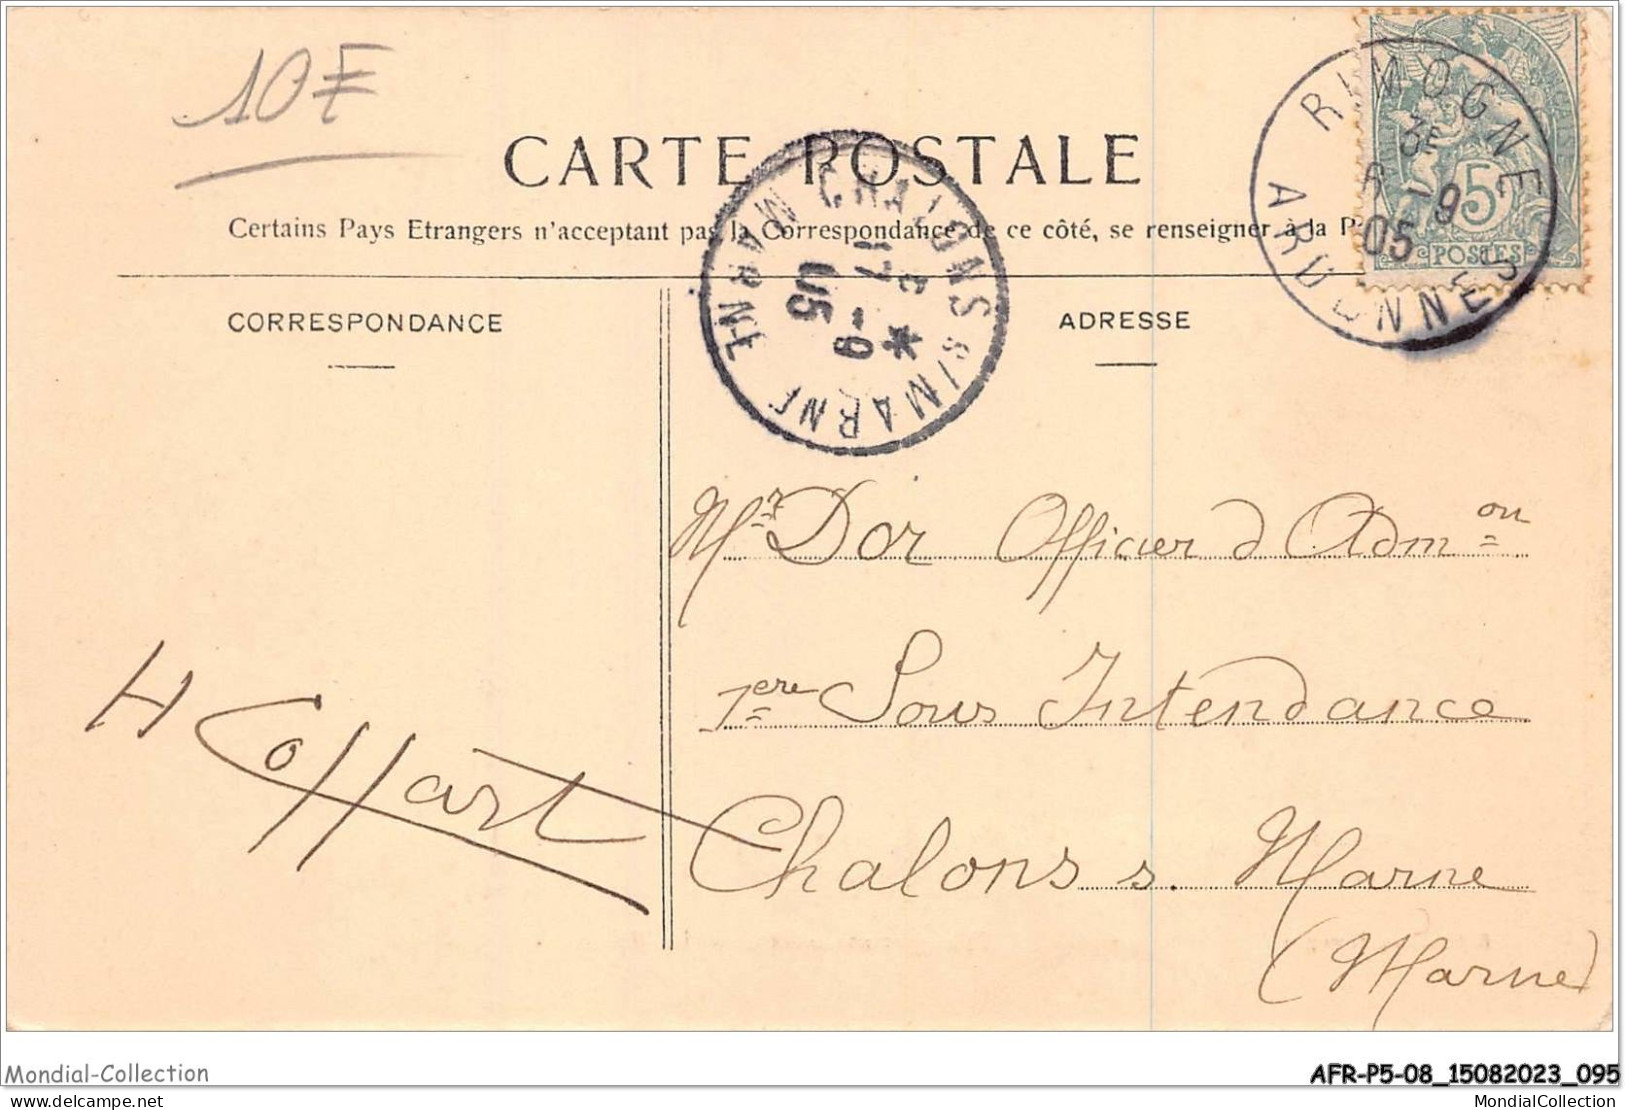 10F
CARTE POSTALE
Certains Pays Etrangers n'acceptant pas la Correspondance de ce côté, se renseigner à la P
CORRESPONDANCE
ADRESSE
RIMOGNE
3E
-9
05
ARDENNES
5
POSTES
CHALONS S/MARNE
17 -9
05
MARNE
Mr Dor Officier d Admon
1ere Sous Intendance
Chalons s. Marne
(Marne)
H Coffart
Mondial-Collection
AFR-P5-08_15082023_095
delcampe.net
MondialCollection